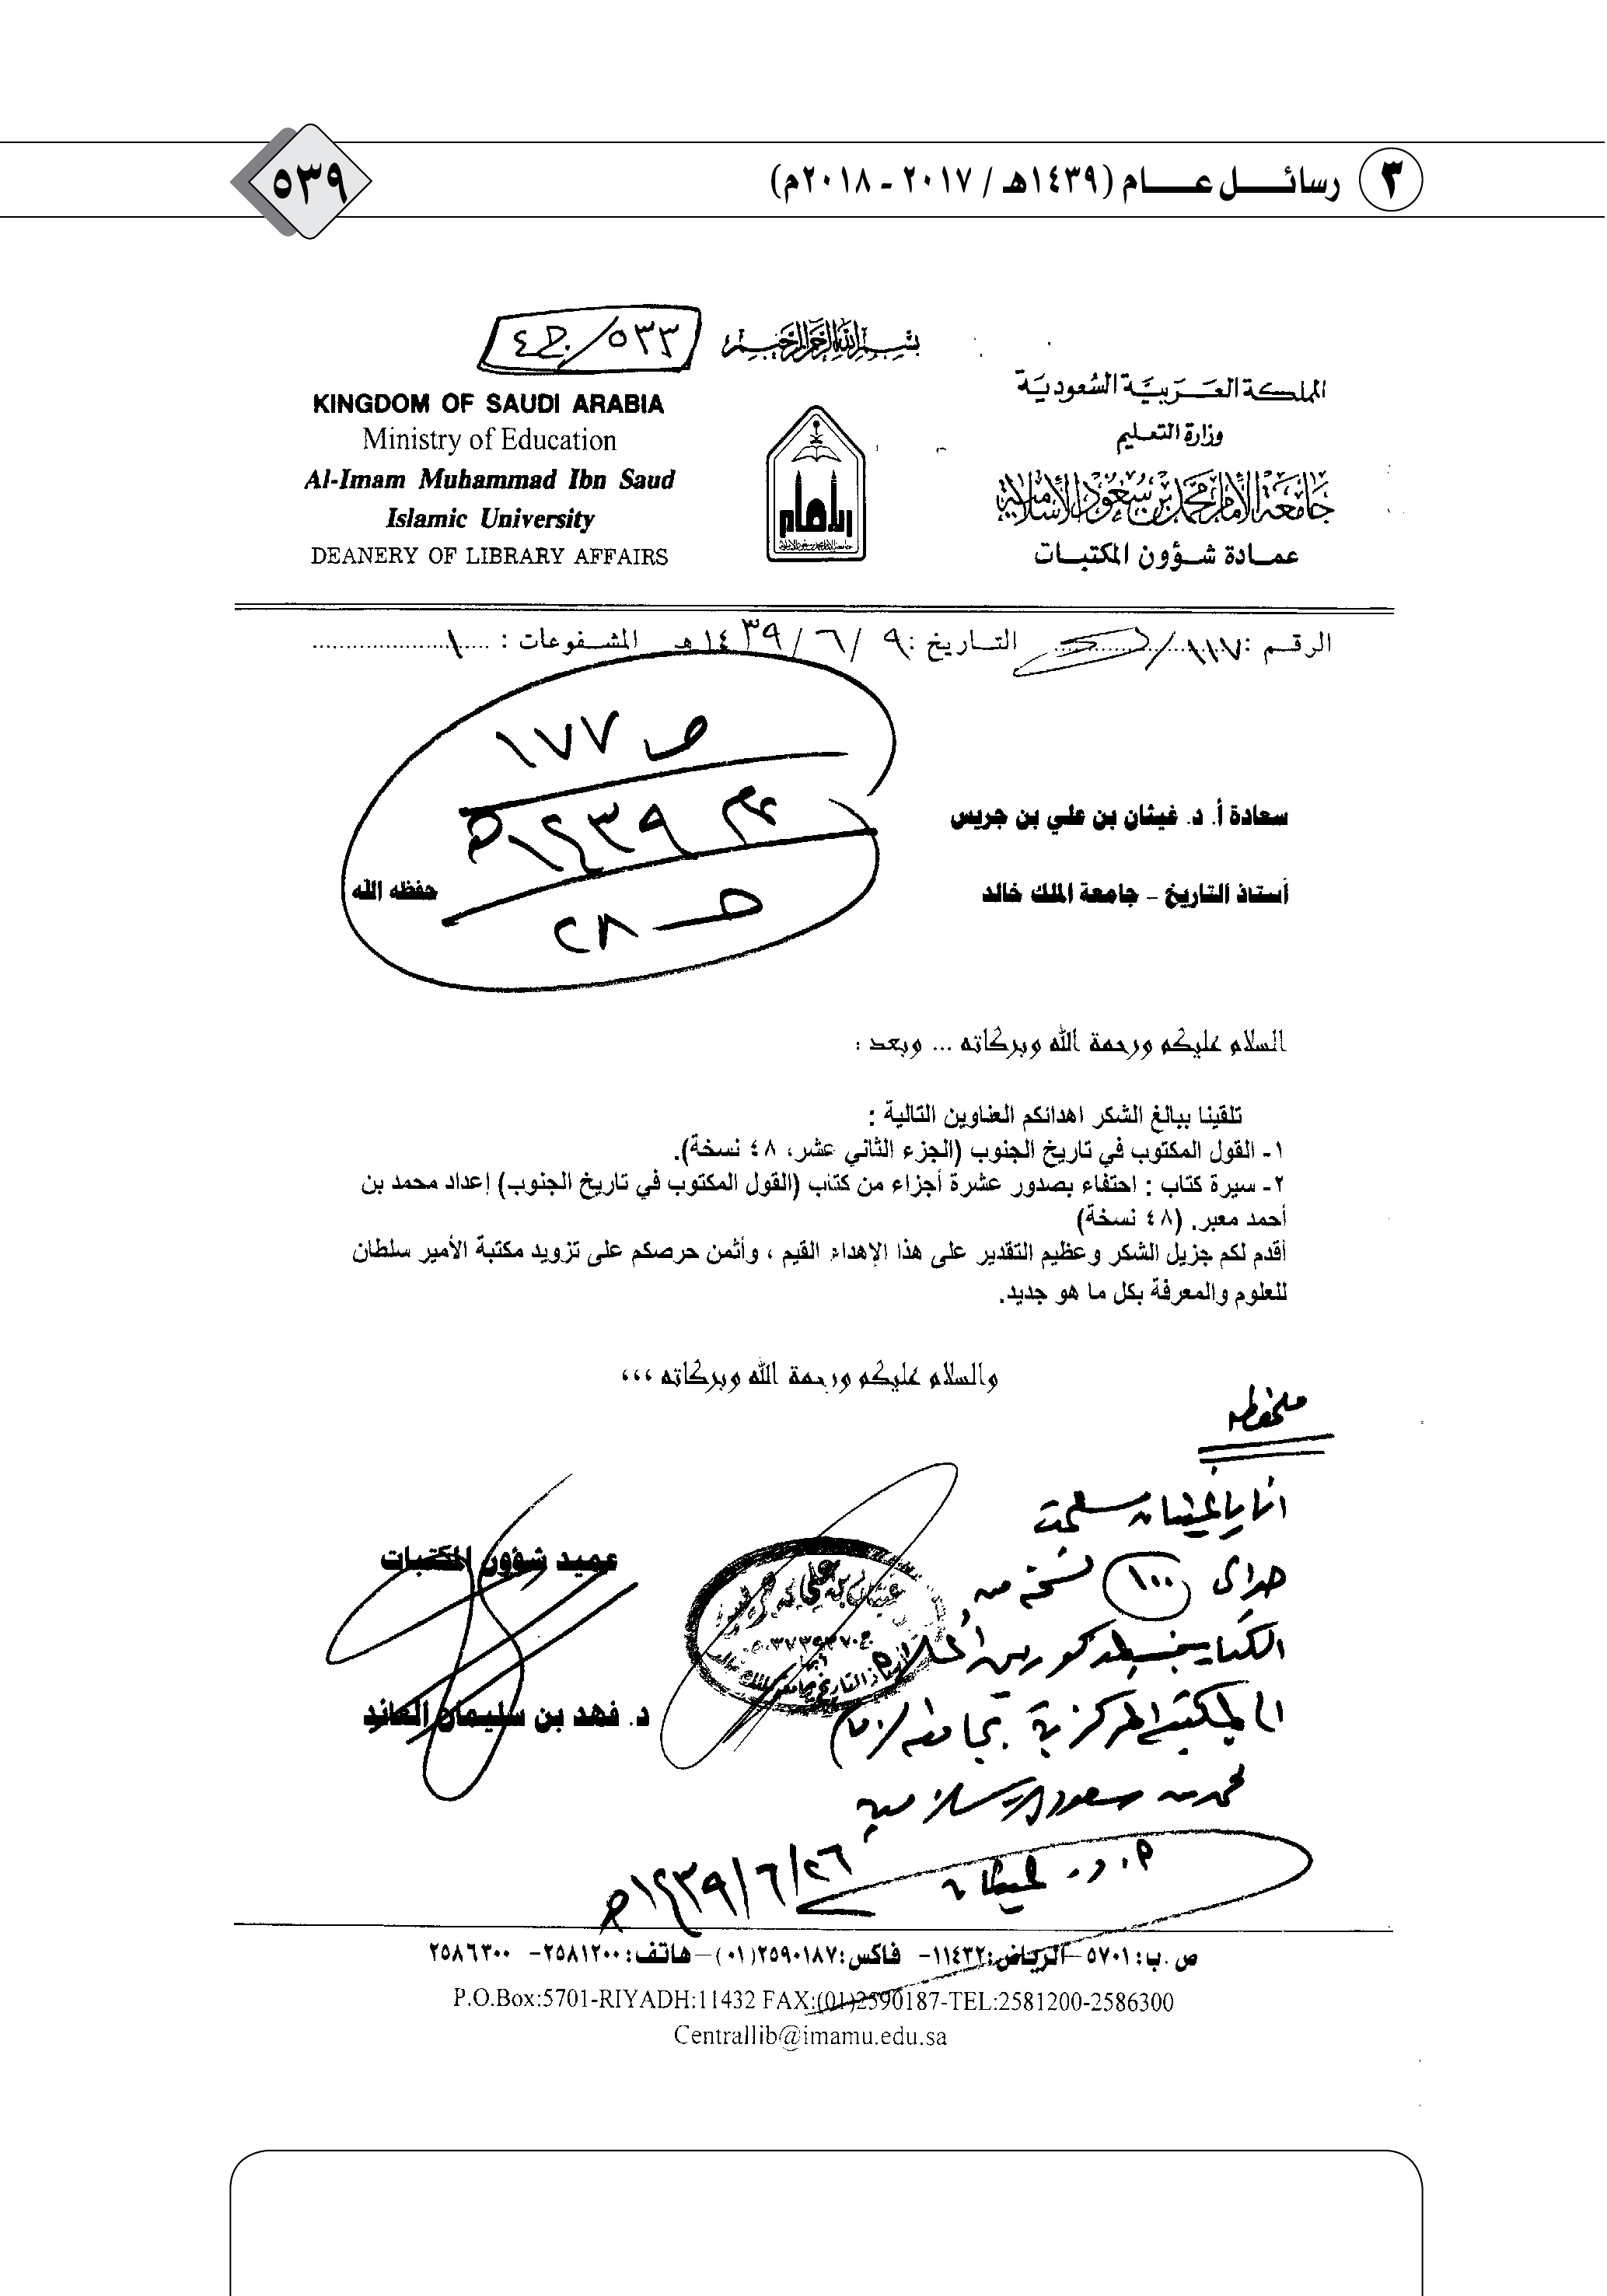 ٣ رسائل عام (١٤٣٩هـ / ٢٠١٧ - ٢٠١٨م)
٥٣٩
بسم الله الرحمن الرحيم
٥٣٣/
المملكة العربية السعودية
وزارة التعليم
جامعة الإمام محمد بن سعود الإسلامية
عمادة شؤون المكتبات
KINGDOM OF SAUDI ARABIA
Ministry of Education
Al-Imam Muhammad Ibn Saud
Islamic University
DEANERY OF LIBRARY AFFAIRS
الإمام
جامعة الإمام محمد بن سعود الإسلامية
الرقم : ١١٧/ التاريخ : ٩ / ٦ / ١٤٣٩هـ المشفوعات : ١
ص ١٧٧
عام ١٤٣٩هـ
٢٨
سعادة أ. د. غيثان بن علي بن جريس
أستاذ التاريخ – جامعة الملك خالد حفظه الله
السلام عليكم ورحمة الله وبركاته ... وبعد :
تلقينا ببالغ الشكر اهدائكم العناوين التالية :
١- القول المكتوب في تاريخ الجنوب (الجزء الثاني عشر، ٤٨ نسخة).
٢- سيرة كتاب : احتفاء بصدور عشرة أجزاء من كتاب (القول المكتوب في تاريخ الجنوب) إعداد محمد بن
أحمد معبر. (٤٨ نسخة)
أقدم لكم جزيل الشكر وعظيم التقدير على هذا الإهداء القيم ، وأثمن حرصكم على تزويد مكتبة الأمير سلطان
للعلوم والمعرفة بكل ما هو جديد.
والسلام عليكم ورحمة الله وبركاته ،،،
ملحوظة
انا يا غيثان سلمت
حوالي ١٠٠ نسخة من
الكتابين المذكورين أعلاه
الى المكتبة المركزية بجامعة الإمام
محمد بن سعود الإسلامية
أ. د. غيثان
٢٦/٦/١٤٣٩هـ
عميد شؤون المكتبات
د. فهد بن سليمان العائد
غيثان بن علي بن جريس
أستاذ التاريخ بجامعة الملك خالد
ص.ب: ٥٧٠١ – الرياض: ١١٤٣٢- فاكس: ٢٥٩٠١٨٧(٠١) – هاتف: ٢٥٨١٢٠٠- ٢٥٨٦٣٠٠
P.O.Box:5701-RIYADH:11432 FAX:(01)2590187-TEL:2581200-2586300
Centrallib@imamu.edu.sa